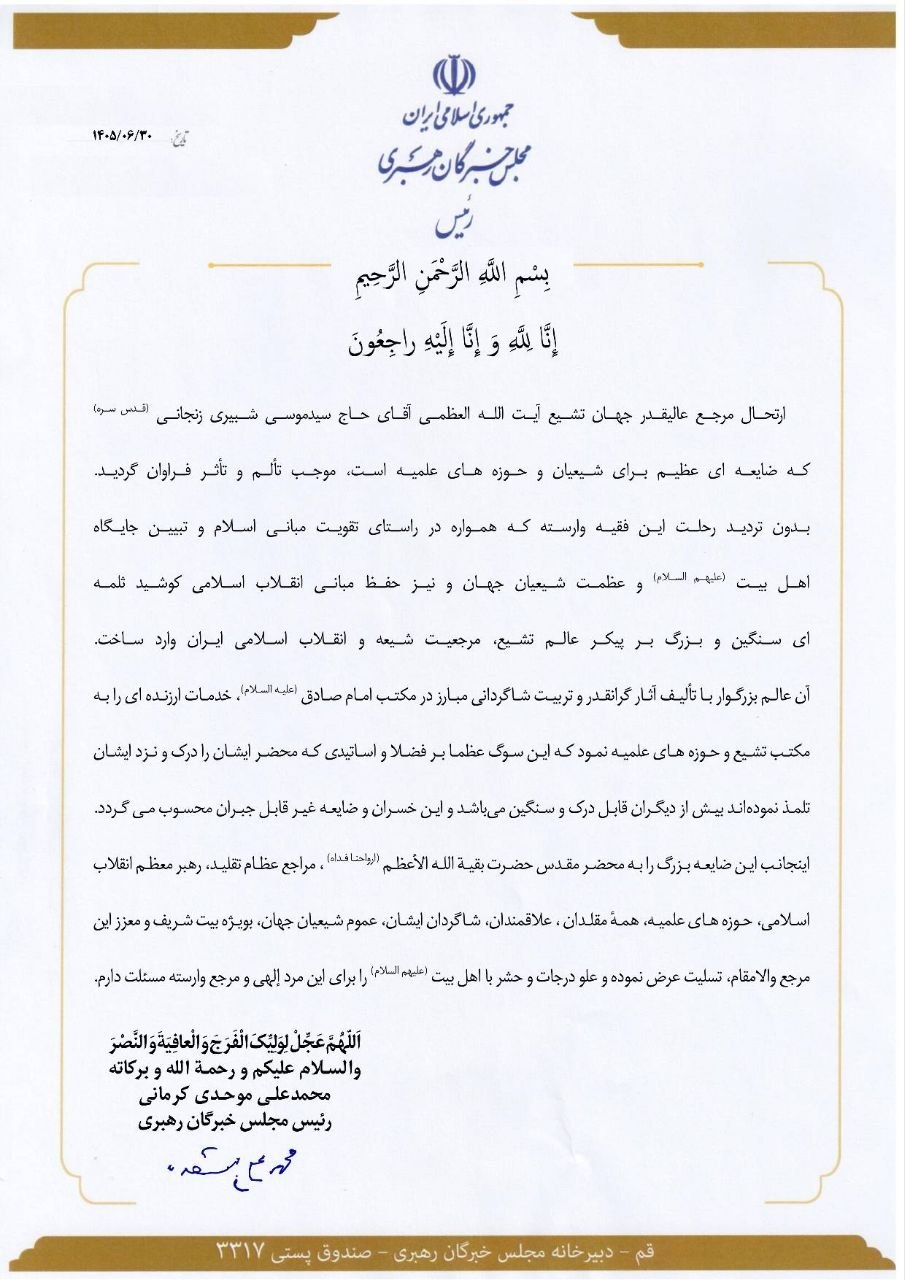 جمهوری اسلامی ایران
مجلس خبرگان رهبری
رئیس
تاریخ: ۱۴۰۵/۰۶/۳۰
بِسْمِ اللَّهِ الرَّحْمَنِ الرَّحِيمِ
إِنَّا لِلَّهِ وَ إِنَّا إِلَيْهِ راجِعُونَ
ارتحال مرجع عالیقدر جهان تشیع آیت الله العظمی آقای حاج سیدموسی شبیری زنجانی (قدس سره)
که ضایعه ای عظیم برای شیعیان و حوزه های علمیه است، موجب تألم و تأثر فراوان گردید.
بدون تردید رحلت این فقیه وارسته که همواره در راستای تقویت مبانی اسلام و تبیین جایگاه
اهل بیت (علیهم السلام) و عظمت شیعیان جهان و نیز حفظ مبانی انقلاب اسلامی کوشید ثلمه
ای سنگین و بزرگ بر پیکر عالم تشیع، مرجعیت شیعه و انقلاب اسلامی ایران وارد ساخت.
آن عالم بزرگوار با تألیف آثار گرانقدر و تربیت شاگردانی مبارز در مکتب امام صادق (علیه السلام)، خدمات ارزنده ای را به
مکتب تشیع و حوزه های علمیه نمود که این سوگ عظما بر فضلا و اساتیدی که محضر ایشان را درک و نزد ایشان
تلمذ نموده‌اند بیش از دیگران قابل درک و سنگین می‌باشد و این خسران و ضایعه غیر قابل جبران محسوب می گردد.
اینجانب این ضایعه بزرگ را به محضر مقدس حضرت بقیة الله الأعظم (ارواحنا فداه)، مراجع عظام تقلید، رهبر معظم انقلاب
اسلامی، حوزه های علمیه، همهٔ مقلدان ، علاقمندان، شاگردان ایشان، عموم شیعیان جهان، بویژه بیت شریف و معزز این
مرجع والامقام، تسلیت عرض نموده و علو درجات و حشر با اهل بیت (علیهم السلام) را برای این مرد إلهی و مرجع وارسته مسئلت دارم.
اَللّهُمَّ عَجِّلْ لِوَلِیِّکَ الْفَرَجَ وَ الْعافِیَةَ وَ النَّصْرَ
والسلام علیکم و رحمة الله و برکاته
محمدعلی موحدی کرمانی
رئیس مجلس خبرگان رهبری
قم - دبیرخانه مجلس خبرگان رهبری - صندوق پستی ۳۳۱۷